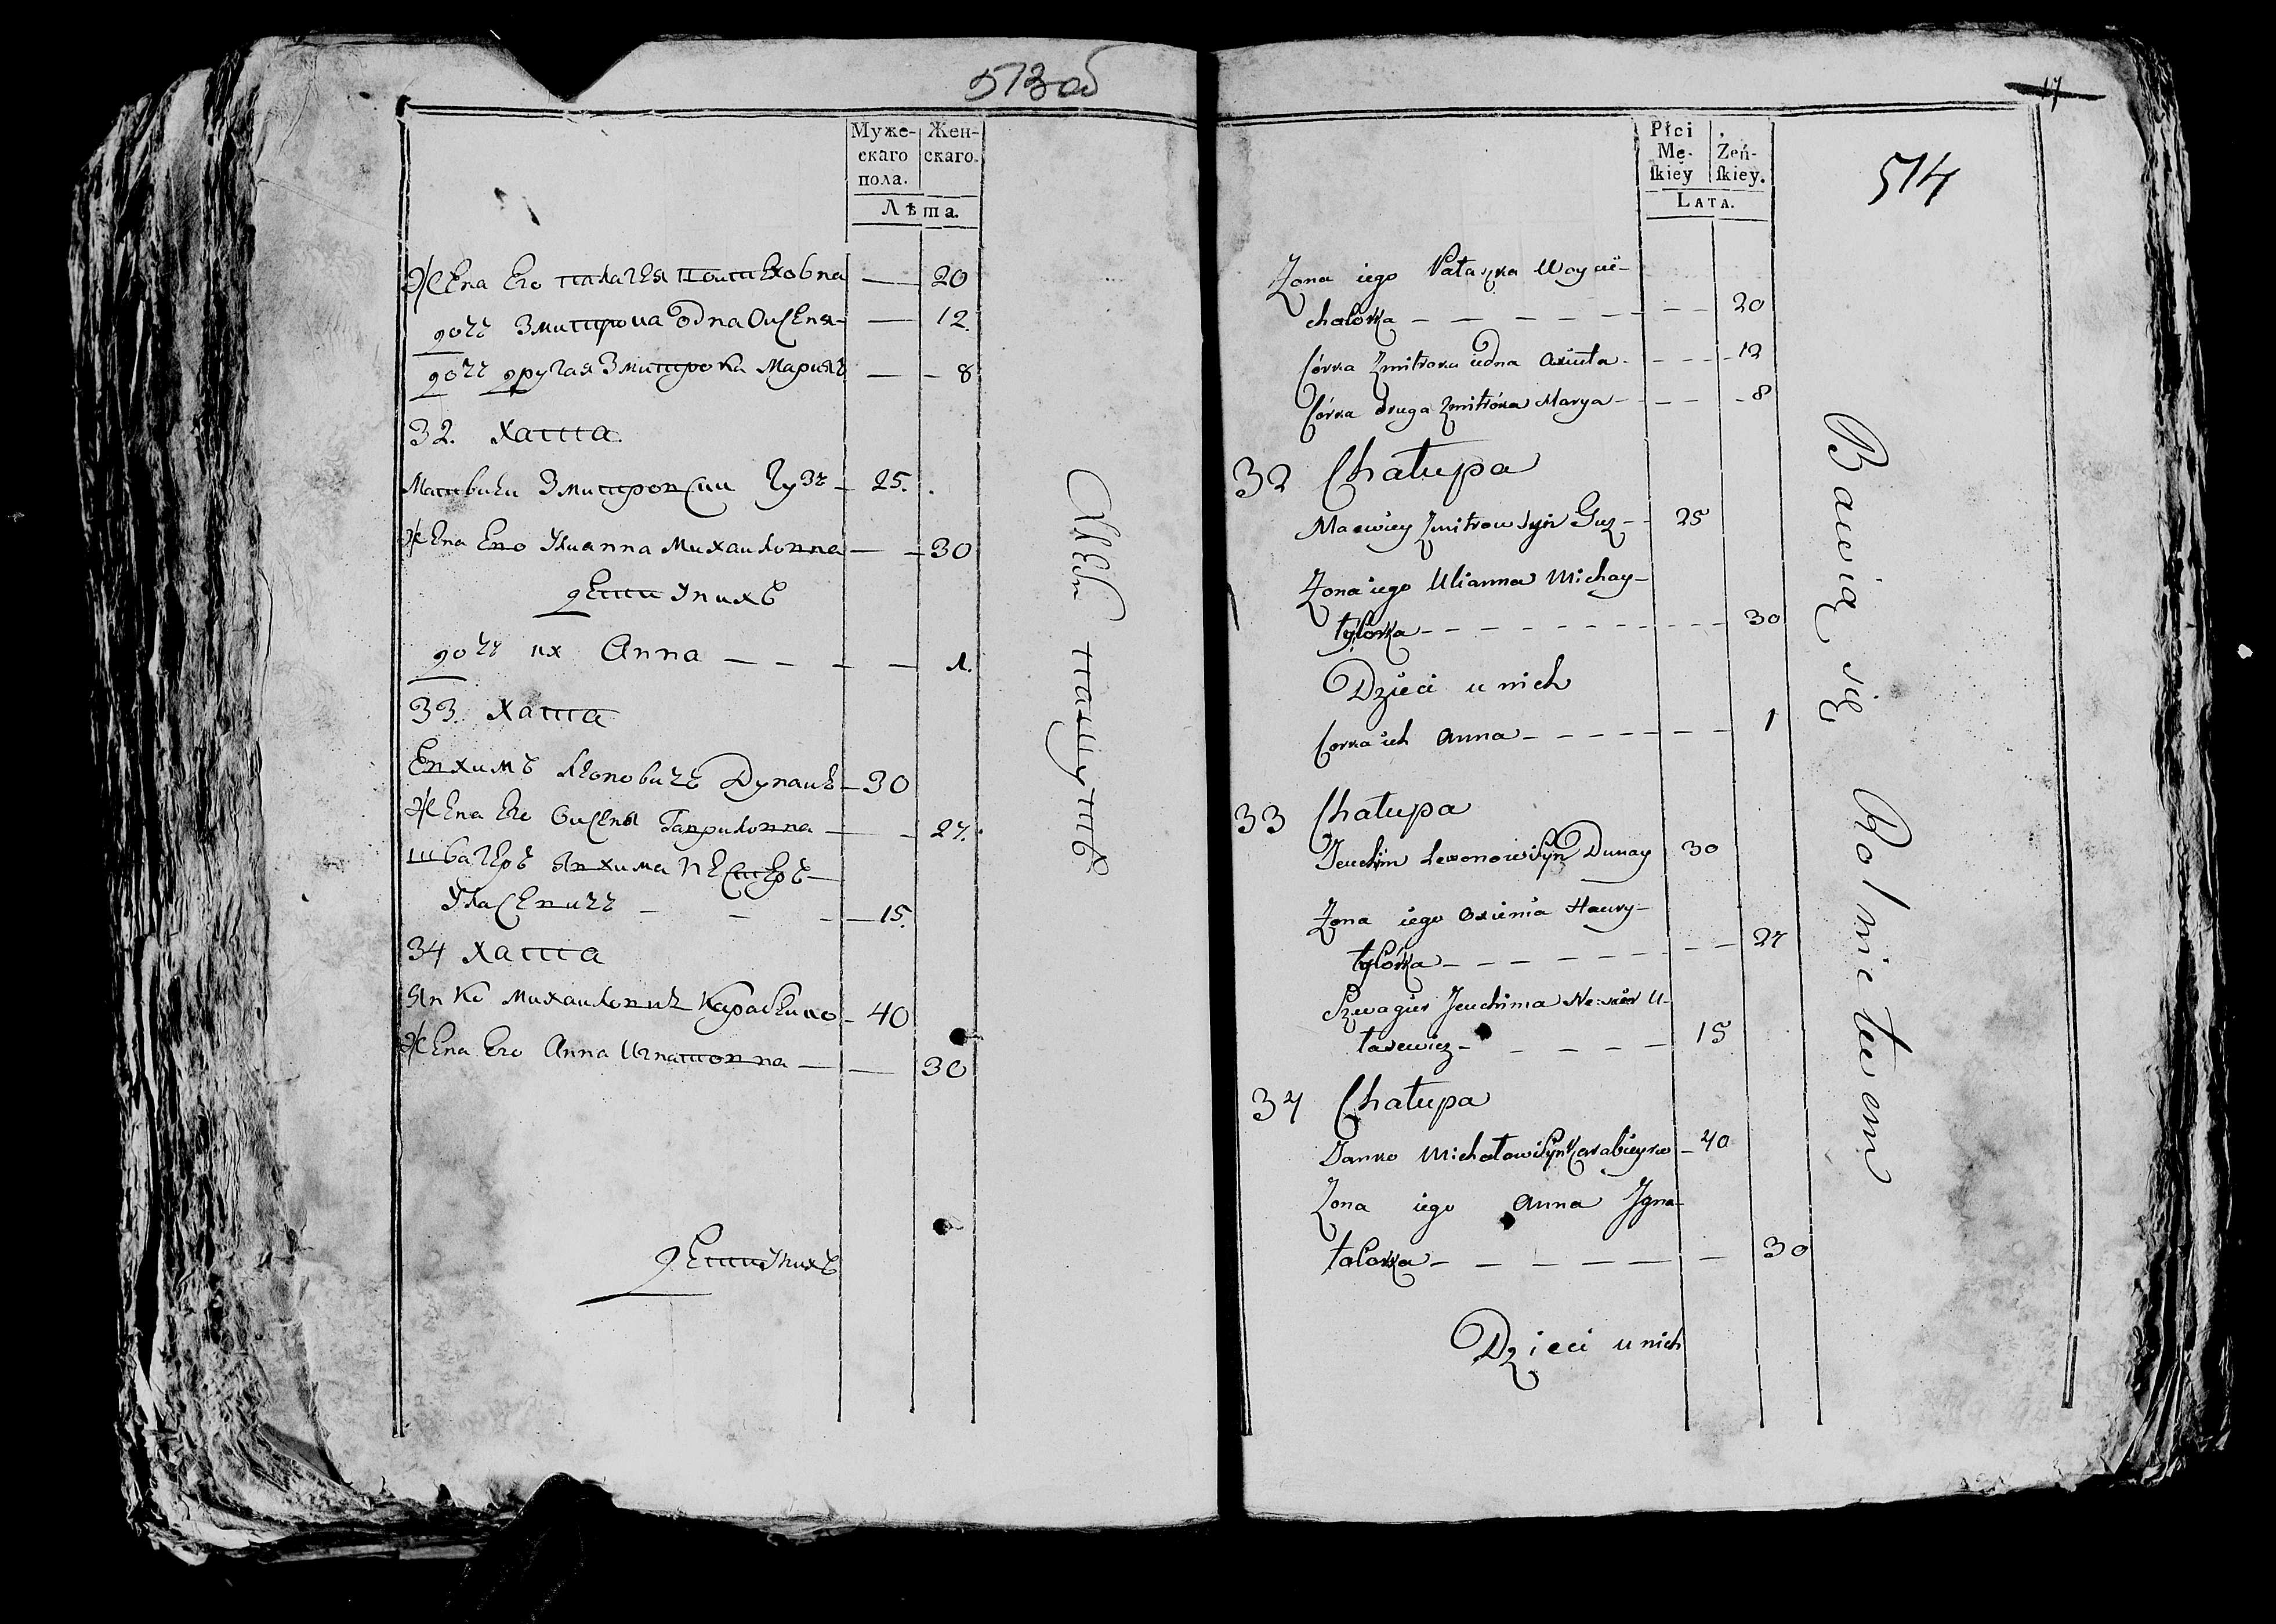 573 об
Муже-
скаго
пола.
Жен-
скаго.
Лѣта.
Жена Его палагея Воитехов'на 20
дочь Змитрока одна Оисеня 12.
дочь другая Змитрока Марья 8
32. Хата.
Матвеи Змитров Сын Гузъ 25.
Жена Ево Улианна Михаиловна 30
дети У них
дочь их Анна 1.
33. Хата
Евхимъ Леоновичъ Дунаи 30
Жена Его Оисеня Гаврилов'на 27.
швагеръ Явхима Нестеръ
Уласевичъ 15.
34 Хата
Янко михаилович Карабеико 40
Жена Его Анна Игнатовна 30
дети Уних
Живут пашутъ
17
514
Płci
Mę-
ſkiey
Żeń-
ſkiey.
LATA.
Zona iego Pałaszka Woycie-
chalowka 20
Córka Zmitroka iedna Oxiuta 12
Córka druga Zmitroka Marya 8
32 Chałupa
Maciwiey Zmitrow Syn Guz 25
Zona iego Ulianna Michay-
łylowka 30
Dzieci u nich
Corka ich Anna 1
33 Chałupa
Jeuchim Lewonow Syn Dunay 30
Zona iego Oxienia Haury-
łylówka 27
Szwagier Jeuchima Nescier U-
łasewicz 15
34 Chałupa
Janko Michałow Syn Karabieyko 40
Zona iego Anna Jgna-
talowka 30
Dzieci u nich
Bawią się Rolnictwem